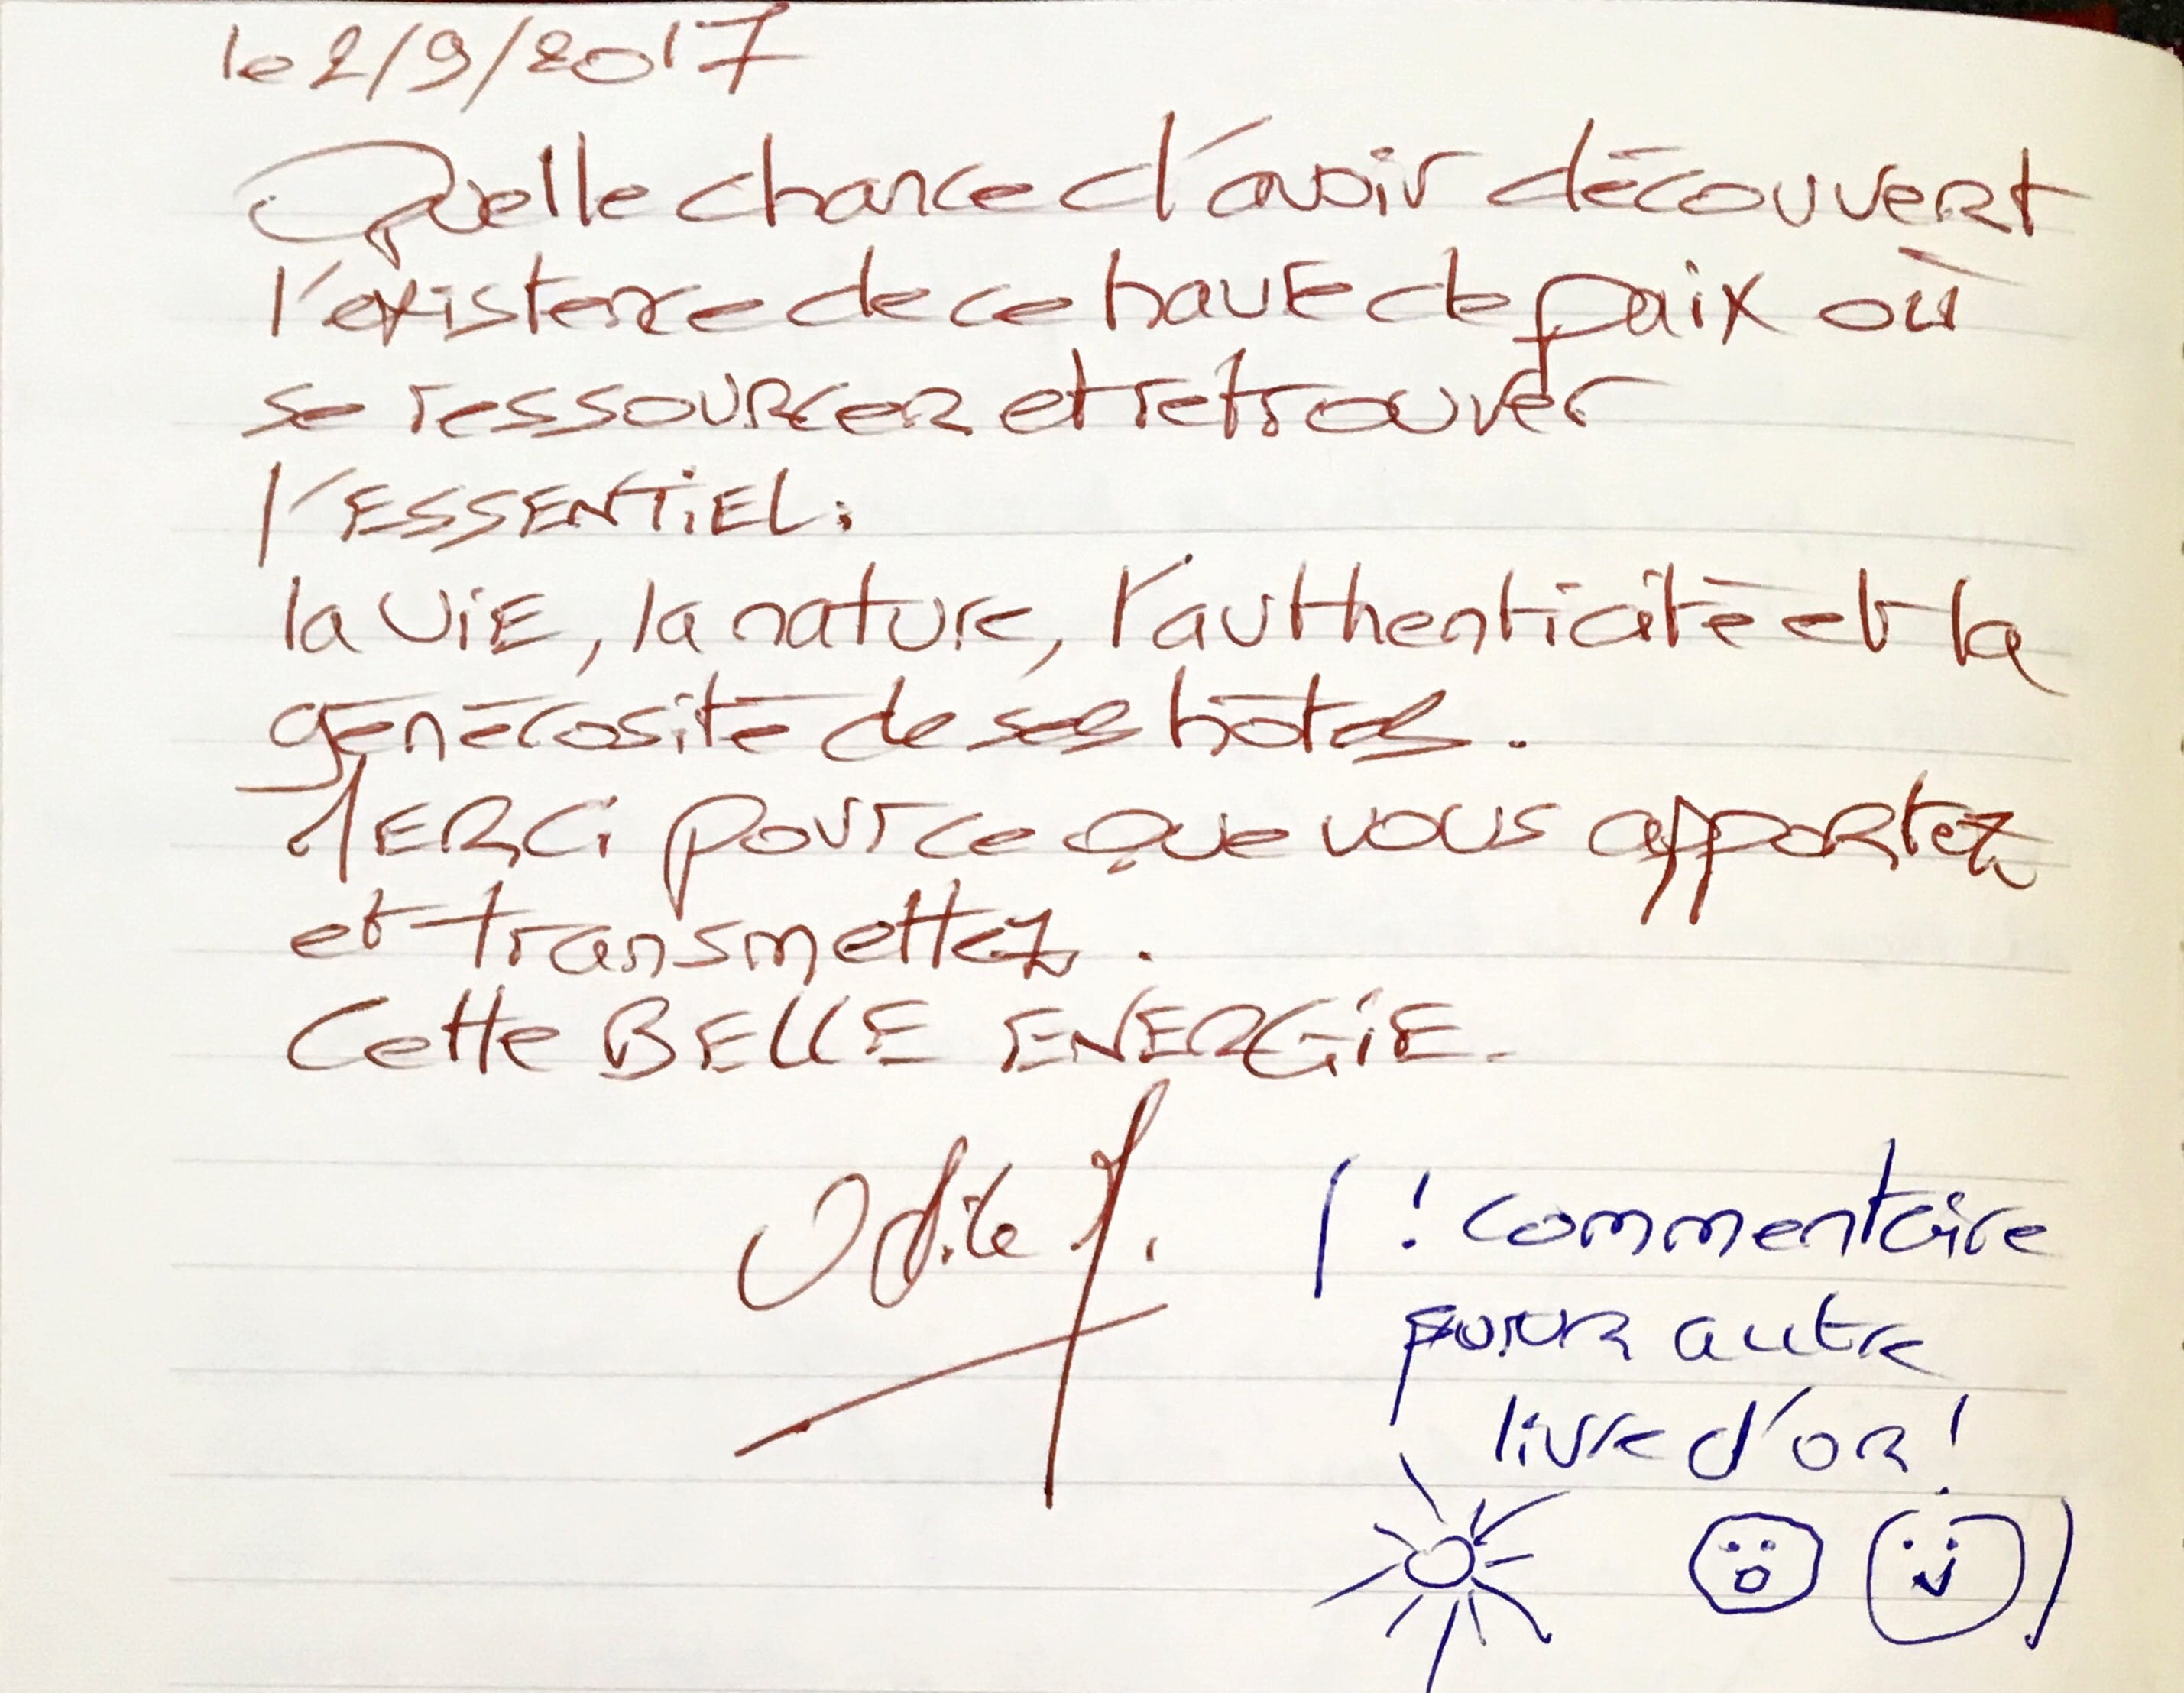 le 2/9/2017
Quelle chance d'avoir découvert
l'existence de ce havre de paix où
se ressourcer et retrouver
l'ESSENTIEL :
la ViE, la nature, l'authenticité et la
générosité de ses hôtes.
MERCi pour ce que vous apportez
et transmettez.
Cette BELLE ENERGiE.
Odile J.
( ! commentaire
pour autre
livre d'or !
)